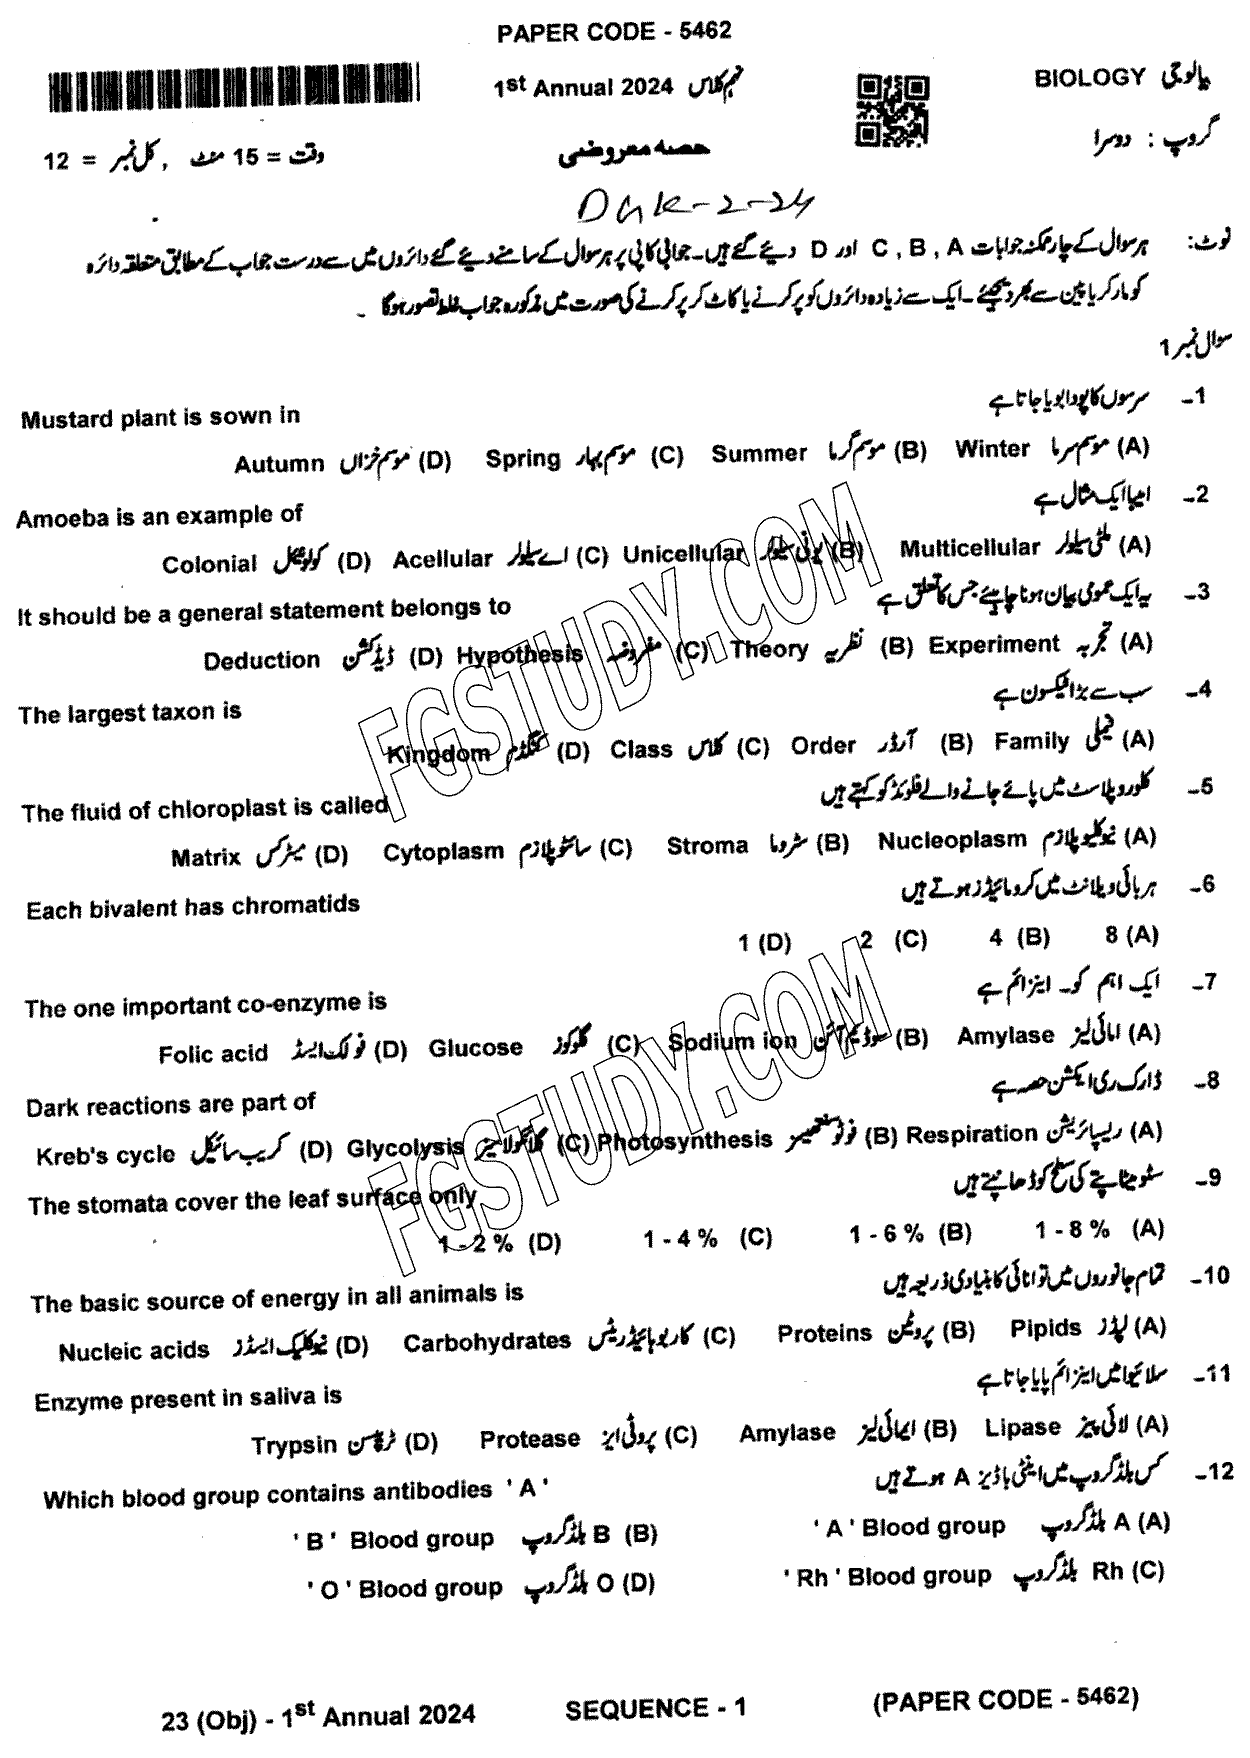 PAPER CODE - 5462
BIOLOGY بیالوجی
1st Annual 2024 نہم کلاس
گروپ : دوسرا
حصہ معروضی
وقت = 15 منٹ , کل نمبر = 12
DGK-2-24
نوٹ: ہر سوال کے چار ممکنہ جوابات A , B , C اور D دیئے گئے ہیں۔ جوابی کاپی پر ہر سوال کے سامنے دیئے گئے دائروں میں سے درست جواب کے مطابق متعلقہ دائرہ
کو مارکر یا پین سے بھر دیجیئے۔ ایک سے زیادہ دائروں کو پر کرنے یا کاٹ کر پر کرنے کی صورت میں مذکورہ جواب غلط تصور ہوگا ۔
سوال نمبر 1
1۔ سرسوں کا پودا بویا جاتا ہے
Mustard plant is sown in
(A) موسم سرما Winter (B) موسم گرما Summer (C) موسم بہار Spring (D) موسم خزاں Autumn
2۔ امیبا ایک مثال ہے
Amoeba is an example of
(A) ملٹی سیلولر Multicellular (B) یونی سیلولر Unicellular (C) اے سیلولر Acellular (D) کولونیئل Colonial
3۔ یہ ایک عمومی بیان ہونا چاہیئے جس کا تعلق ہے
It should be a general statement belongs to
(A) تجربہ Experiment (B) نظریہ Theory (C) مفروضہ Hypothesis (D) ڈیڈکشن Deduction
4۔ سب سے بڑا ٹیکسون ہے
The largest taxon is
(A) فیملی Family (B) آرڈر Order (C) کلاس Class (D) کنگڈم Kingdom
5۔ کلوروپلاسٹ میں پائے جانے والے فلوئڈ کو کہتے ہیں
The fluid of chloroplast is called
(A) نیوکلیوپلازم Nucleoplasm (B) سٹروما Stroma (C) سائٹوپلازم Cytoplasm (D) میٹرکس Matrix
6۔ ہر بائی ویلانٹ میں کروماٹیڈز ہوتے ہیں
Each bivalent has chromatids
(A) 8 (B) 4 (C) 2 (D) 1
7۔ ایک اہم کو۔ اینزائم ہے
The one important co-enzyme is
(A) امائی لیز Amylase (B) سوڈیم آئن Sodium ion (C) گلوکوز Glucose (D) فولک ایسڈ Folic acid
8۔ ڈارک ری ایکشن حصہ ہے
Dark reactions are part of
(A) ریسپائریشن Respiration (B) فوٹوسنتھیسز Photosynthesis (C) گلائکولائسز Glycolysis (D) کریب سائیکل Kreb's cycle
9۔ سٹومیٹا پتے کی سطح کو ڈھانپتے ہیں
The stomata cover the leaf surface only
(A) 1 - 8 % (B) 1 - 6 % (C) 1 - 4 % (D) 1 - 2 %
10۔ تمام جانوروں میں توانائی کا بنیادی ذریعہ ہیں
The basic source of energy in all animals is
(A) لپڈز Pipids (B) پروٹین Proteins (C) کاربوہائیڈریٹس Carbohydrates (D) نیوکلیک ایسڈز Nucleic acids
11۔ سلائیوا میں اینزائم پایا جاتا ہے
Enzyme present in saliva is
(A) لائی پیز Lipase (B) ایمائی لیز Amylase (C) پروٹی ایز Protease (D) ٹرپسن Trypsin
12۔ کس بلڈ گروپ میں اینٹی باڈیز A ہوتے ہیں
Which blood group contains antibodies ' A '
(A) A بلڈ گروپ ' A ' Blood group (B) B بلڈ گروپ ' B ' Blood group
(C) Rh بلڈ گروپ ' Rh ' Blood group (D) O بلڈ گروپ ' O ' Blood group
23 (Obj) - 1st Annual 2024 SEQUENCE - 1 (PAPER CODE - 5462)
FGSTUDY.COM
FGSTUDY.COM